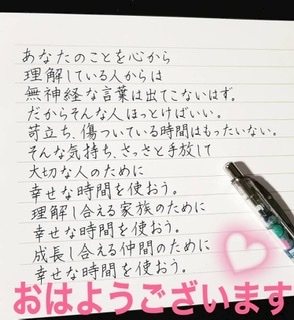 あなたのことを心から
理解している人からは
無神経な言葉は出てこないはず。
だからそんな人ほっとけばいい。
苛立ち、傷ついている時間はもったいない。
そんな気持ち、さっさと手放して
大切な人のために
幸せな時間を使おう。
理解し合える家族のために
幸せな時間を使おう。
成長し合える仲間のために
幸せな時間を使おう。
おはようございます